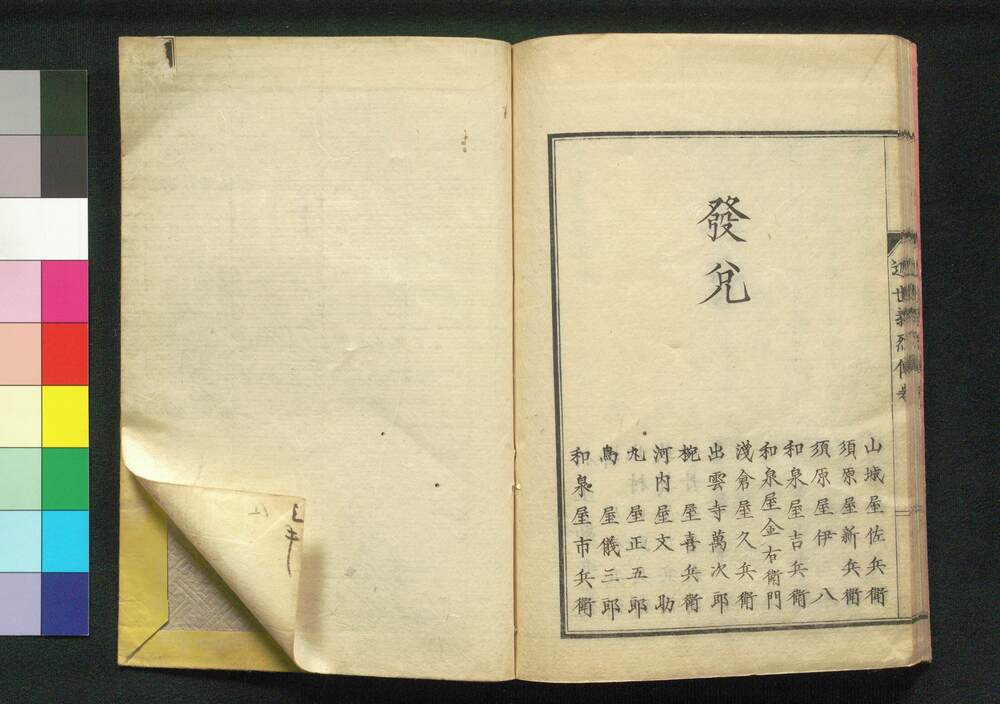 近世義烈傳
發兌
山城屋佐兵衛
須原屋新兵衛
須原屋伊八
和泉屋吉兵衛
和泉屋金右衛門
淺倉屋久兵衛
出雲寺萬次郎
椀屋喜兵衛
河内屋文助
丸屋正五郎
嶋屋儀三郎
和泉屋市兵衛